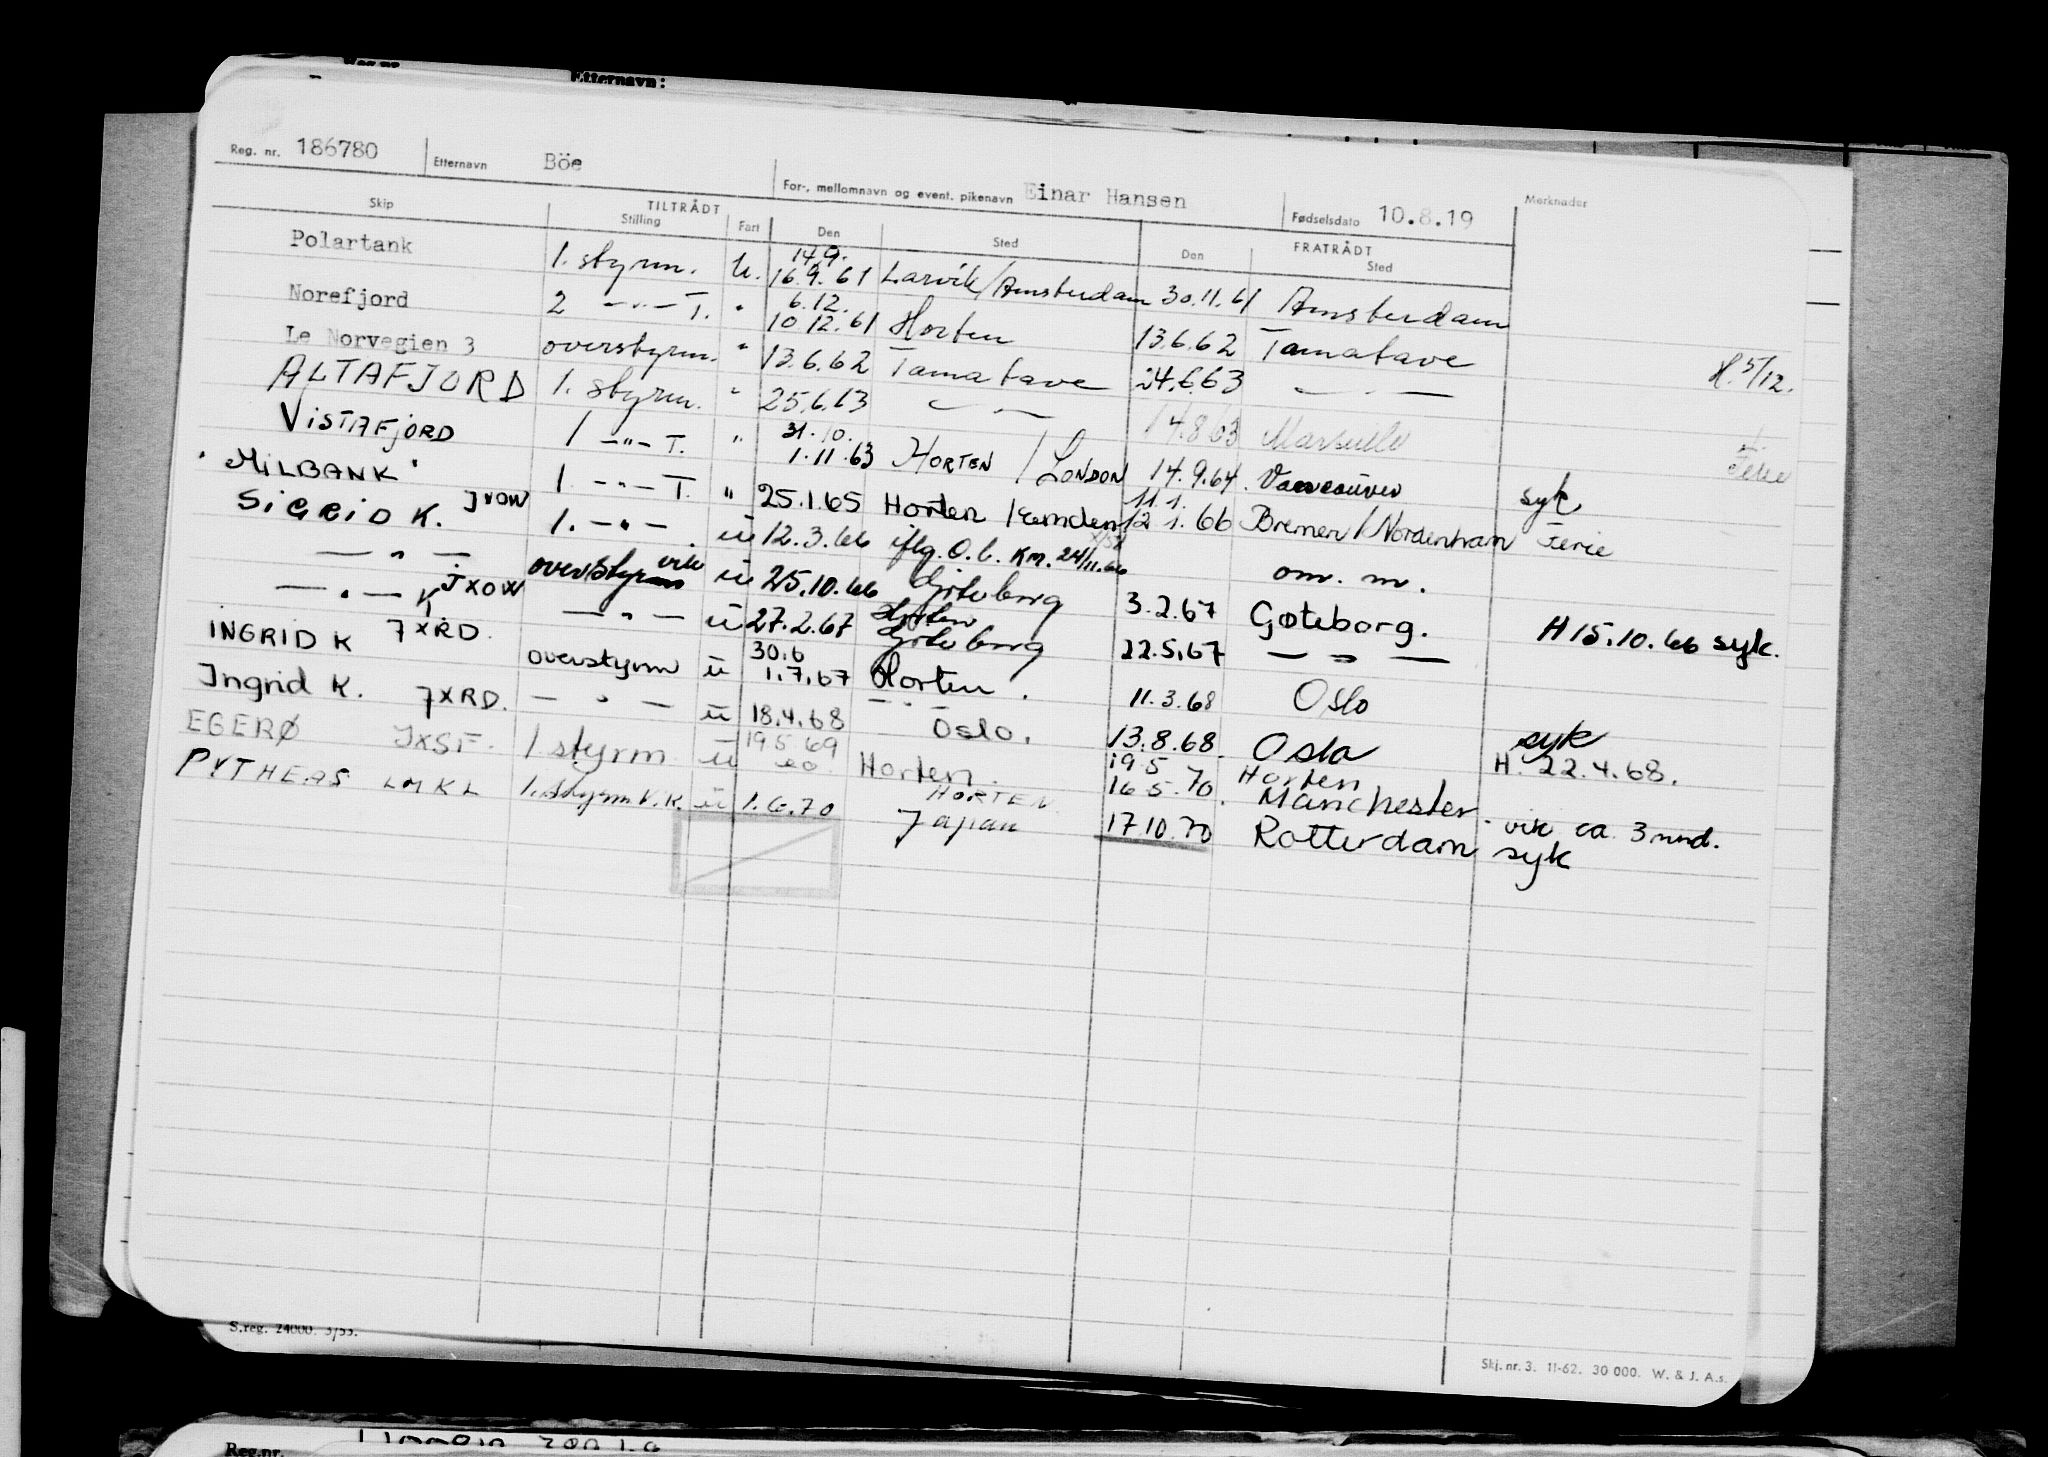 Etternavn:
Reg. nr. 186780 Etternavn Böe For-, mellomnavn og event. pikenavn Einar Hansen Fødselsdato 10.8.19 Merknader
Skip TILTRÅDT Stilling Fart Den Sted FRATRÅDT Den Sted
14.9.
Polartank 1. styrm. U. 16.9.61 Larvik/Amsterdam 30.11.61 Amsterdam
6.12.
Norefjord 2 -"- T. " 10.12.61 Horten 13.6.62 Tamatave H. 5/12.
Le Norvegien 3 overstyrm. " 13.6.62 Tamatave 24.6.63 - " -
ALTAFJORD 1. styrm. " 25.6.63 - " - 14.8.63 Marseille Ferie
31.10.
VISTAFJORD 1 -"- T. " 1.11.63 HORTEN / LONDON 14.9.64. Vancouver syk
11.1.
"MILBANK" 1. -"- T. " 25.1.65 Horten / Emden 12.1.66 Bremen/Nordenham Ferie
SIGRID K. JXOW 1. -"- . ü 12.3.66 iflg. O.b. KM. 24/11.66 om. m.
- " - overstyrm vik ü 25.10.66 Gøteborg 3.2.67 Gøteborg. H 15.10.66 syk.
- " - K JXOW - " - ü 27.2.67 Horten Gøteborg 22.5.67 - " -
30.6
INGRID K JXRD. overstyrm ü 1.7.67 Horten . 11.3.68 Oslo
Ingrid K. JXRD. - " - ü 18.4.68 - " - Oslo. 13.8.68. Oslo syk H. 22.4.68.
19.5.69 19.5
EGERØ JXSF. 1 styrm. ü 20. Horten. 16.5.70 Horten Manchester. vik ca. 3 mnd.
PYTHEAS LMKL 1. styrm V.K. ü 1.6.70 HORTEN Japan 17.10.70 Rotterdam syk
S.reg. 24000. 3/55.
Skj. nr. 3. 11-62. 30 000. W. & J. A.s.
Reg.nr.